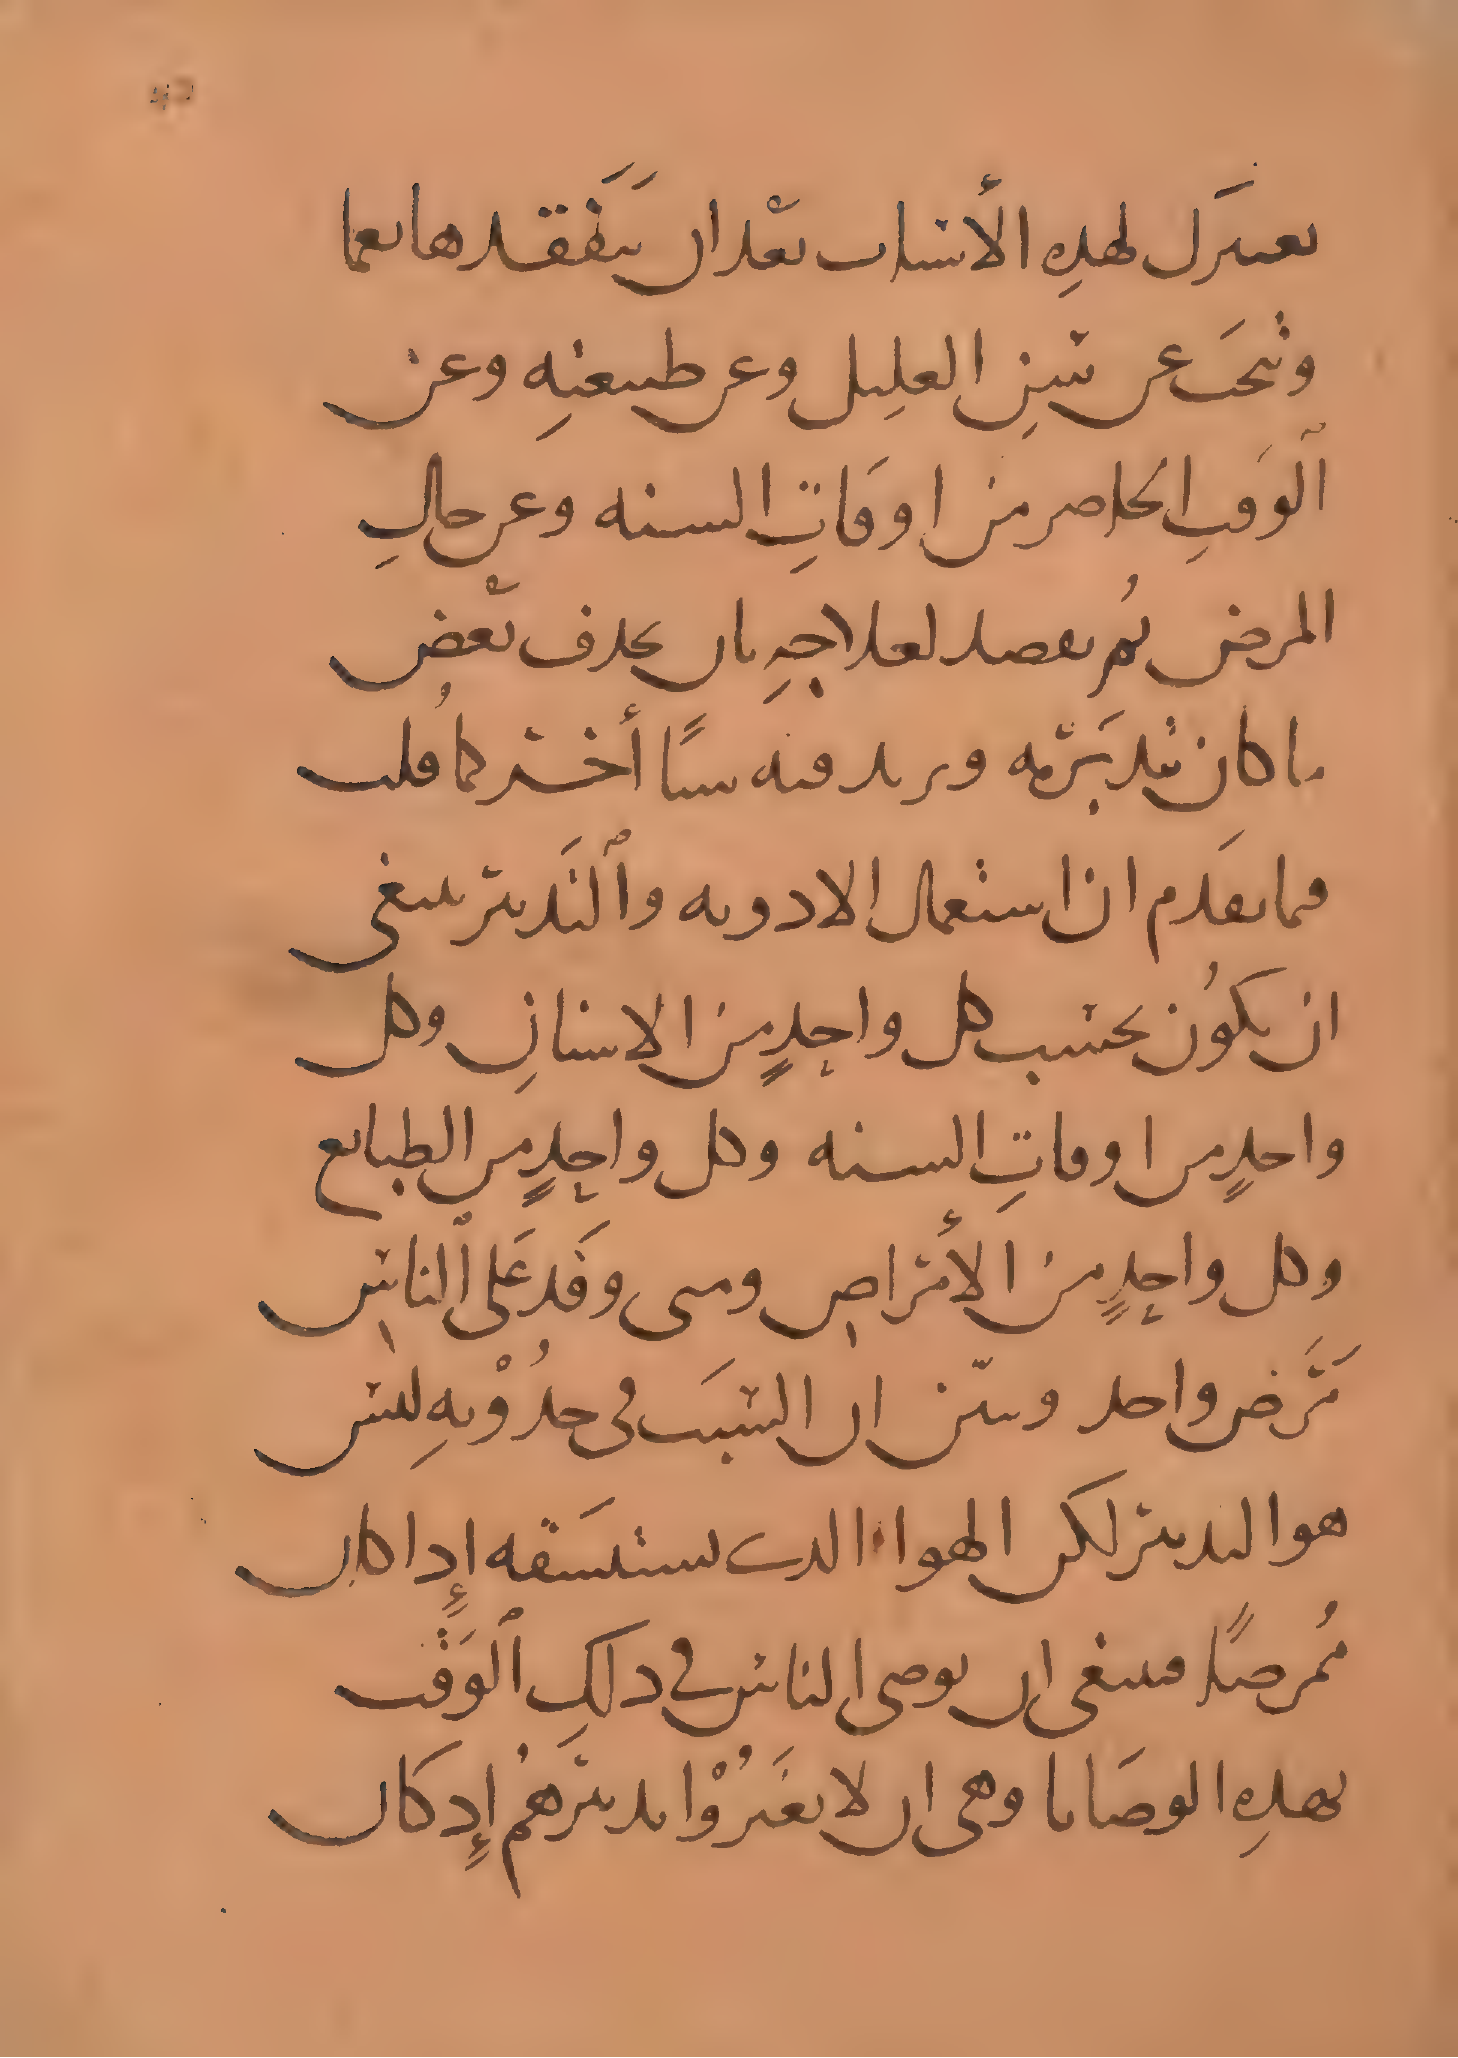 بعيرل لهذِه الأسباب بعْد ان يتَفَقدها نعما
ويبحَث عن سِن العليل وعن طبيعتِه وعن
ٱلوَقتِ الحاضر من اوقاتِ السنه وعن حالِ
المرض ثُم يقصد لعلاجِه بان يحذف بعْض
ما كان يتدبَّر به ويريد فيه شيئًا أخر كما قُلت
فيما تقَدم ان استعمال الادويه وٱلتَدبير ينبغى
ان يكُون بحسب كل واحدٍ من الاسنانِ وكل
واحدٍ من اوقاتِ السنه وكل واحدٍ من الطبايع
وكل واحدٍ من الأمراض ومتى وفَد عَلى ٱلناس
مَرَض واحد وتبيّن ان السبَب فى حدُوْثِه ليس
هو التدبير لكن الهواء الذى نستنشَقه إِذا كان
مُمرضًا فينبغى ان توصى الناس فى ذلكِ ٱلوَقْت
بهذِه الوصَايا وهى ان لا يغَيرُوْا تدبيرهُم إِذ كان